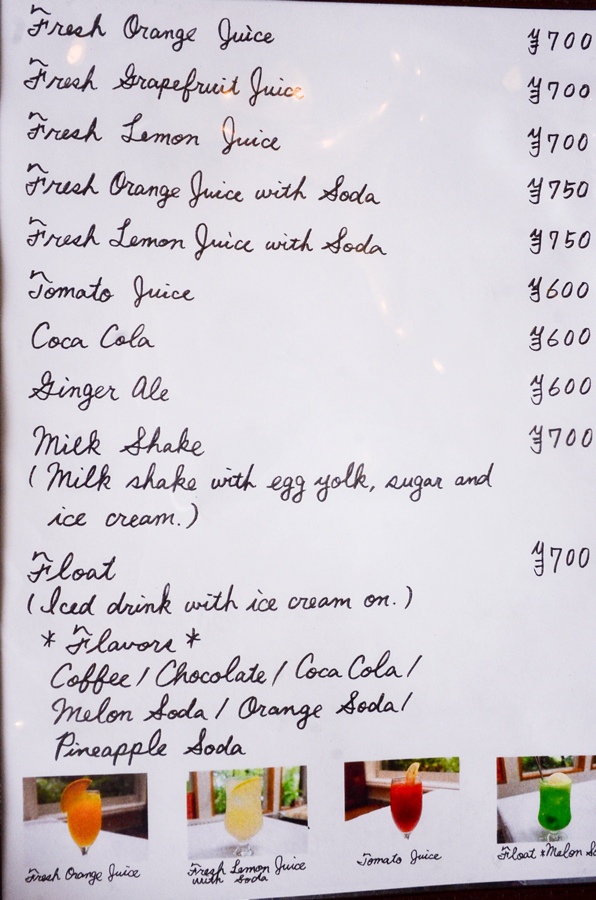 Fresh Orange Juice ¥700
Fresh Grapefruit Juice ¥700
Fresh Lemon Juice ¥700
Fresh Orange Juice with Soda ¥750
Fresh Lemon Juice with Soda ¥750
Tomato Juice ¥600
Coca Cola ¥600
Ginger Ale ¥600
Milk Shake ¥700
(Milk shake with egg yolk, sugar and
ice cream.)
Float ¥700
(Iced drink with ice cream on.)
* Flavors *
Coffee / Chocolate / Coca Cola /
Melon Soda / Orange Soda /
Pineapple Soda
Fresh Orange Juice
Fresh Lemon Juice
with Soda
Tomato Juice
Float *Melon So